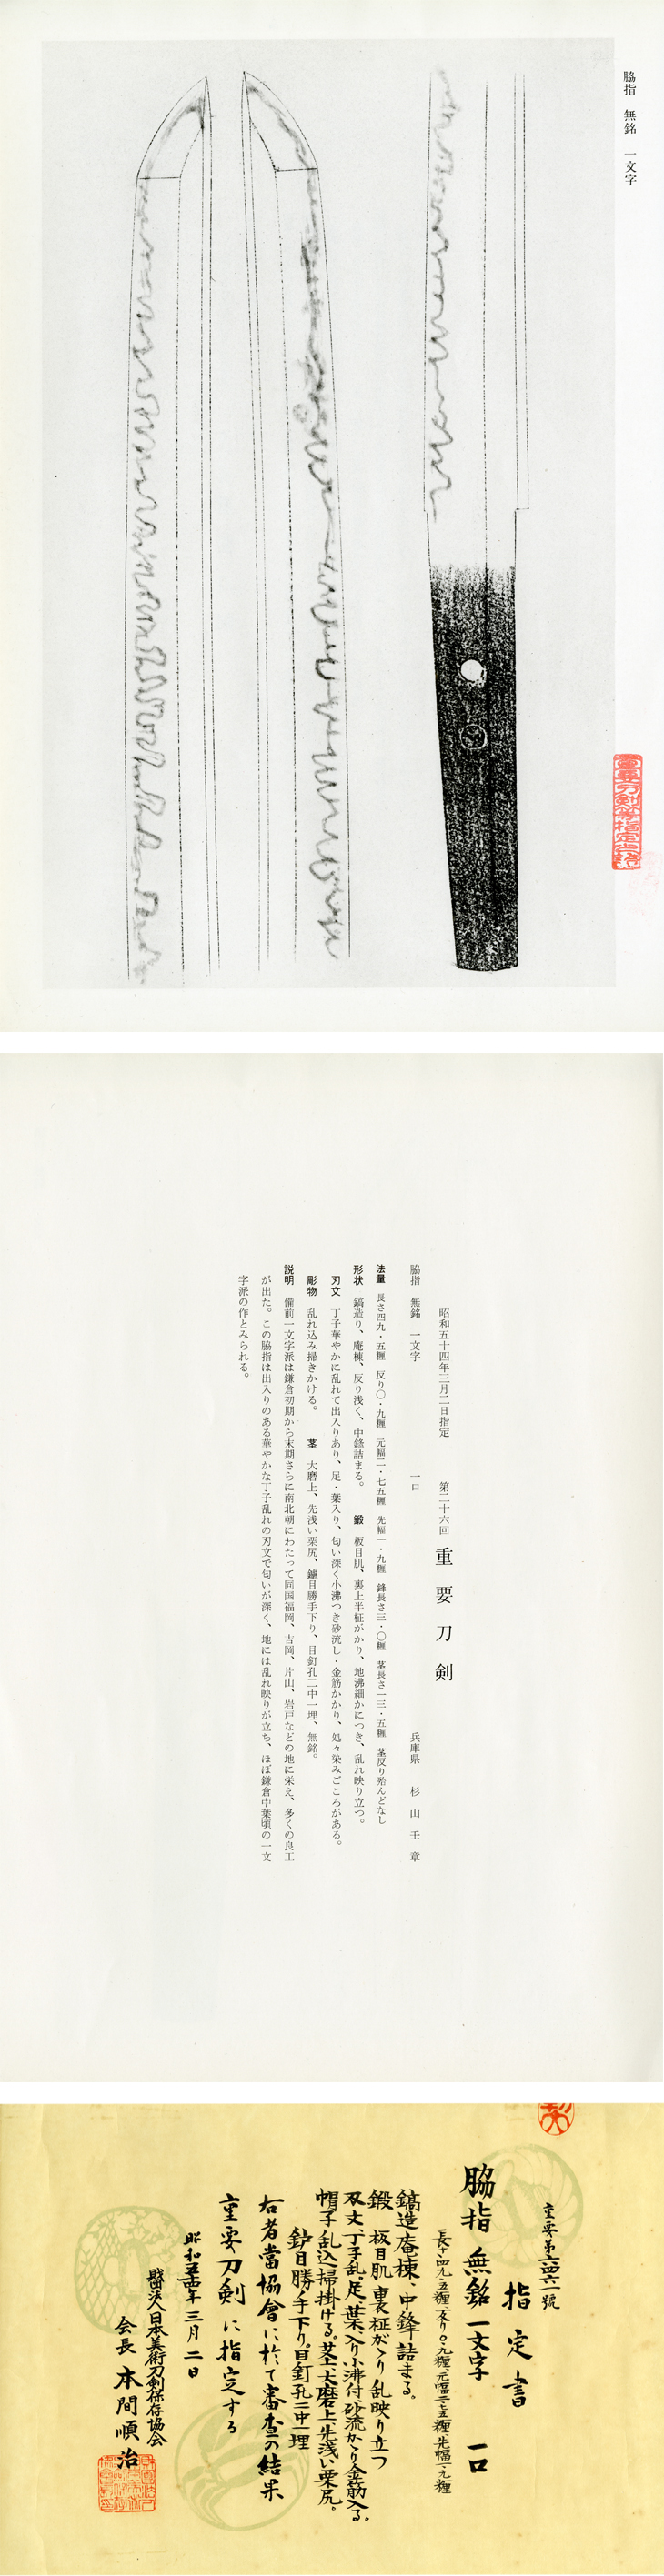 脇指　無銘　一文字
重要刀剣等指定之證
昭和五十四年三月二日指定　第二十六回　重要刀剣
脇指　無銘　一文字　一口　兵庫県　杉山壬章
法量　長さ四九・五糎　反り〇・九糎　元幅二・七五糎　先幅一・九糎　鋒長さ三・〇糎　茎長さ一三・五糎　茎反り殆んどなし
形状　鎬造り、庵棟、反り浅く、中鋒詰まる。　鍛　板目肌、裏上半柾がかり、地沸細かにつき、乱れ映り立つ。
刃文　丁子華やかに乱れて出入りあり、足・葉入り、匂い深く小沸つき砂流し・金筋かかり、処々染みごころがある。
彫物　乱れ込み掃きかける。　茎　大磨上、先浅い栗尻、鑢目勝手下り、目釘孔二中一埋、無銘。
説明　備前一文字派は鎌倉初期から末期さらに南北朝にわたって同国福岡、吉岡、片山、岩戸などの地に栄え、多くの良工
が出た。この脇指は出入りのある華やかな丁子乱れの刃文で匂いが深く、地には乱れ映りが立ち、ほぼ鎌倉中葉頃の一文
字派の作とみられる。
重要第六四六一號
指定書
脇指　無銘一文字　一口
長さ四九・五糎　反り〇・九糎　元幅二・七五糎　先幅一・九糎
鎬造庵棟、中鋒詰まる。
鍛　板目肌　裏柾がゝり　乱映り立つ
刃文、丁子乱、足、葉、入り小沸付砂流かゝり金筋入る。
帽子乱込掃掛ける。茎大磨上先浅い栗尻。
鈩目勝手下り。目釘孔二中一埋
右者當協會に於て審査の結果
重要刀剣に指定する
昭和五十四年三月二日
財団法人日本美術刀剣保存協会
会長　本間順治